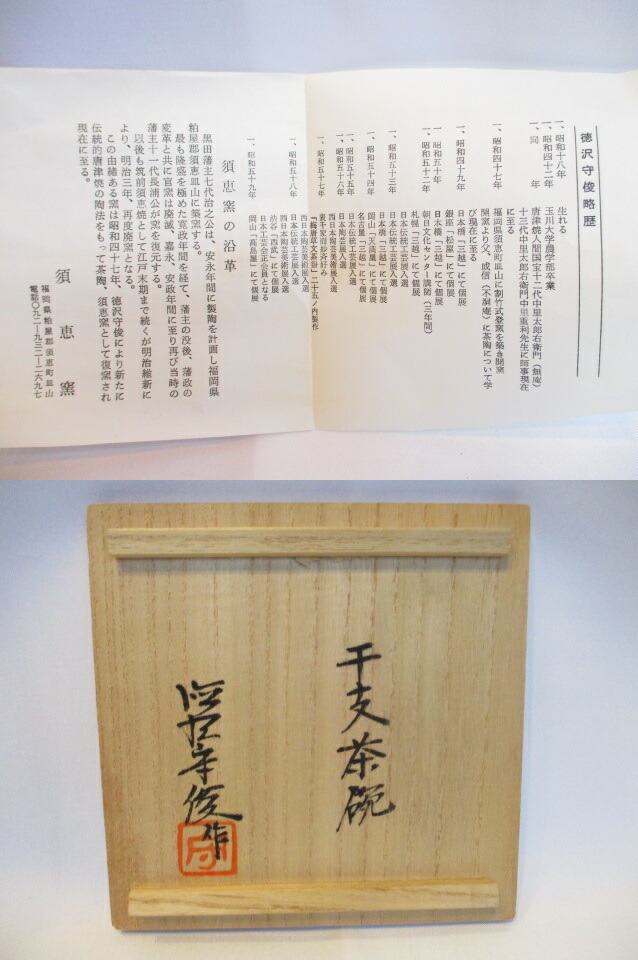 德沢守俊略歴
一、昭和十八年 生れる
一、昭和四十二年 玉川大学農学部卒業
一、同 年 唐津焼人間国宝十二代中里太郎右衛門（無庵）
十三代中里太郎右衛門中里重利先生に師事現在
に至る
一、昭和四十七年 福岡県須恵町皿山に割竹式登窯を築き開窯
開窯より父、成信（不
庵）に茶陶について学
び現在に至る
一、昭和四十九年 日本橋「三越」にて個展
銀座「松屋」にて個展
一、昭和五十年 日本橋「三越」にて個展
一、昭和五十二年 朝日文化センター講師（三年間）
札幌「三越」にて個展
日本伝統工芸展入選
一、昭和五十三年 日本伝統工芸展入選
日本橋「三越」にて個展
一、昭和五十四年 岡山「天満屋」にて個展
名古屋「三越」にて個展
一、昭和五十五年 日本伝統工芸展入選
一、昭和五十六年 日本陶芸展入選
西日本陶芸美術展入選
一、昭和五十七年 表千家而妙斎好み
「梅唐草文茶碗」二十五ノ内製作
西日本陶芸美術展入選
一、昭和五十八年 日本伝統工芸展入選
西日本陶芸美術展入選
渋谷「西武」にて個展
日本工芸会正会員となる
一、昭和五十九年 岡山「高島屋」にて個展
須恵窯の沿革
黒田藩主七代治之公は、安永年間に製陶を計画し福岡県
粕屋郡須恵皿山に築窯する。
最も隆盛を極めた寛政年間を経て、藩主の没後、藩政の
変革と共に官窯は廃滅、嘉永、安政年間に至り再び当時の
藩主十一代長浦公が窯を復元する。
以後も筑前須恵焼として江戸末期まで続くが明治維新に
より、明治三年、再度廃窯となる。
この由緒ある窯は昭和四十七年、德沢守俊により新たに
伝統的唐津焼の陶法をもって茶陶、須恵窯として復窯され
現在に至る。
須恵窯
福岡県粕屋郡須恵町皿山
電話〇九二―九三二―二六九七
干支茶碗
德沢守俊作